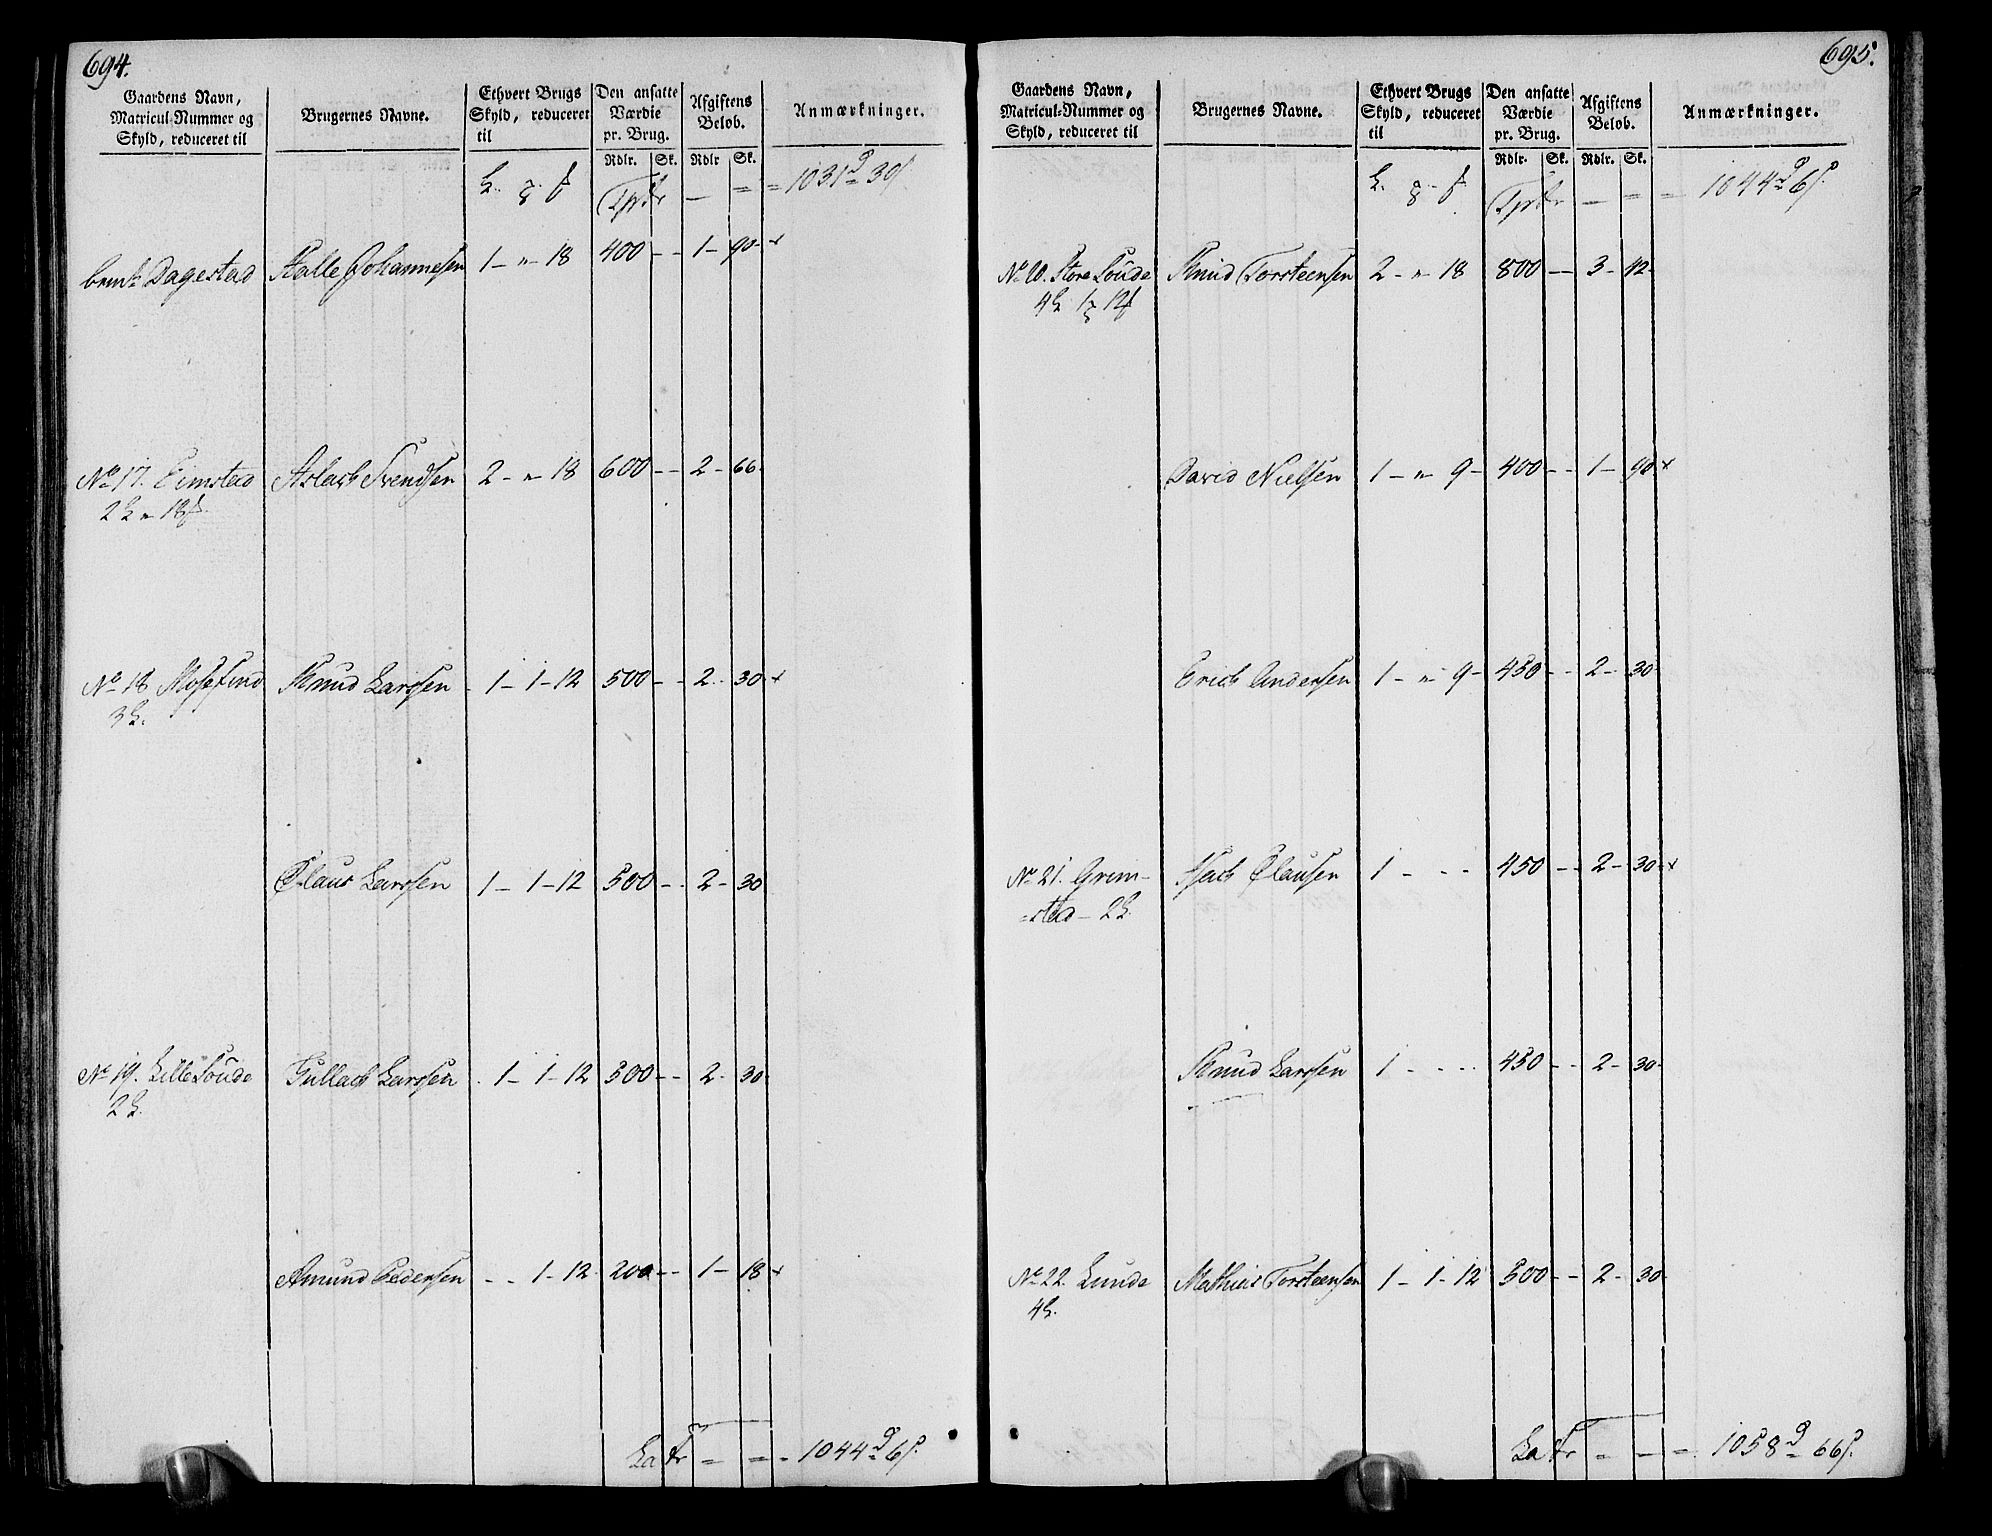 694.
Gaardens Navn, Matricul-Nummer og Skyld, reduceret til | Brugernes Navne. | Ethvert Brugs Skyld, reduceret til | Den ansatte Værdie pr. Brug. | Afgiftens Beløb. | Anmærkninger.
Rdlr. Sk. | Rdlr Sk.
Tprtr — = = 1031 30
Dagestad | Halle Johannesen | 1 - " - 18 | 400 -- | 1 - 90 - x
No 17. Eimstad | Aslach Svendsen | 2 - " - 18 | 600 -- | 2 - 66 -
2 " 18
No 18 Mosefind | Knud Larssen | 1 - 1 - 12 | 500 -- | 2 - 30 x
3
Claus Larssen | 1 - 1 - 12 | 500 -- | 2 - 30
No 19. Lille Soude | Gullach Larssen | 1 - 1 - 12 | 500 -- | 2 - 30
2
Amund Pedersen | - - 1 - 12 | 200 -- | 1 - 18 x
La Tr = = = 1044 6
695.
Gaardens Navn, Matricul-Nummer og Skyld, reduceret til | Brugernes Navne. | Ethvert Brugs Skyld, reduceret til | Den ansatte Værdie pr. Brug. | Afgiftens Beløb. | Anmærkninger.
Rdlr. Sk. | Rdlr. Sk.
Tprtr — = = 1044 6
No 20. Store Soude | Knud Torsteensen | 2 - " - 18 | 800 -- | 3 - 42
4 1 12
David Nielsen | 1 - " - 9 - | 400 -- | 1 - 90 x
Erich Andersen | 1 - " - 9 - | 450 -- | 2 - 30
No 21. Grim- | Clausen | 1 - - - | 450 -- | 2 - 30 x
=stad - 2
Knud Larssen | 1 - - - - | 450 -- | 2 - 30
No 22. Lunde | Mathias Torsteensen | 1 - 1 - 12 | 500 -- | 2 - 30
4
La Tr = - = 1058 66